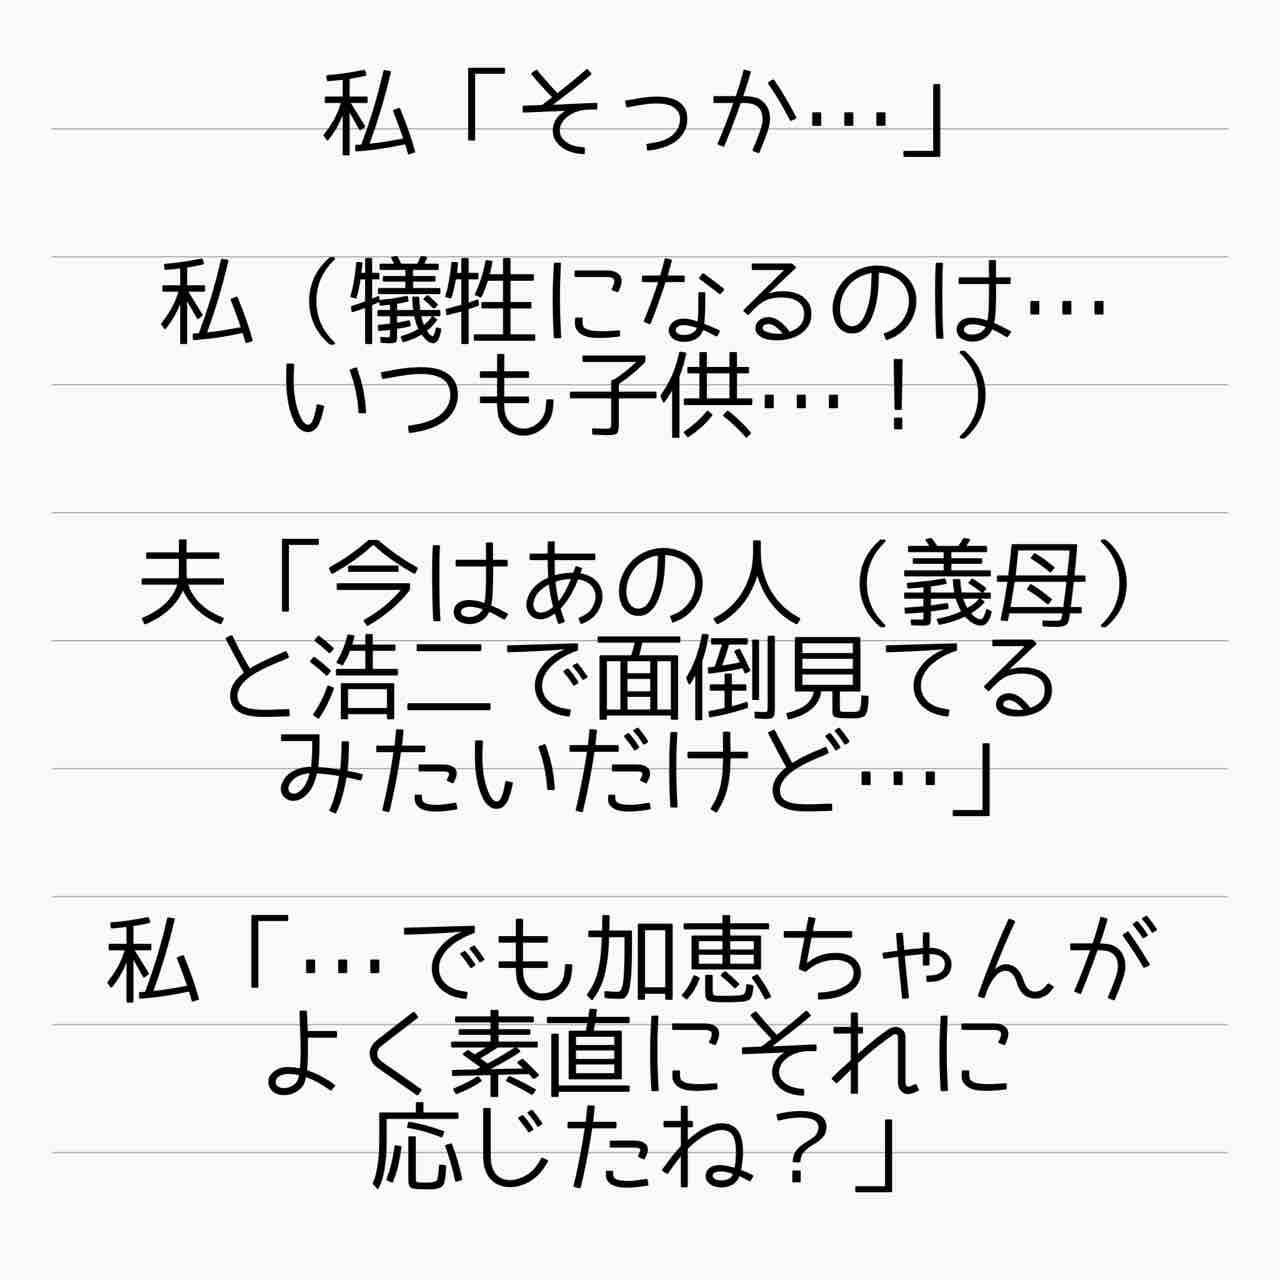 私「そっか…」
私（犠牲になるのは…
いつも子供…！）
夫「今はあの人（義母）
と浩二で面倒見てる
みたいだけど…」
私「…でも加恵ちゃんが
よく素直にそれに
応じたね？」